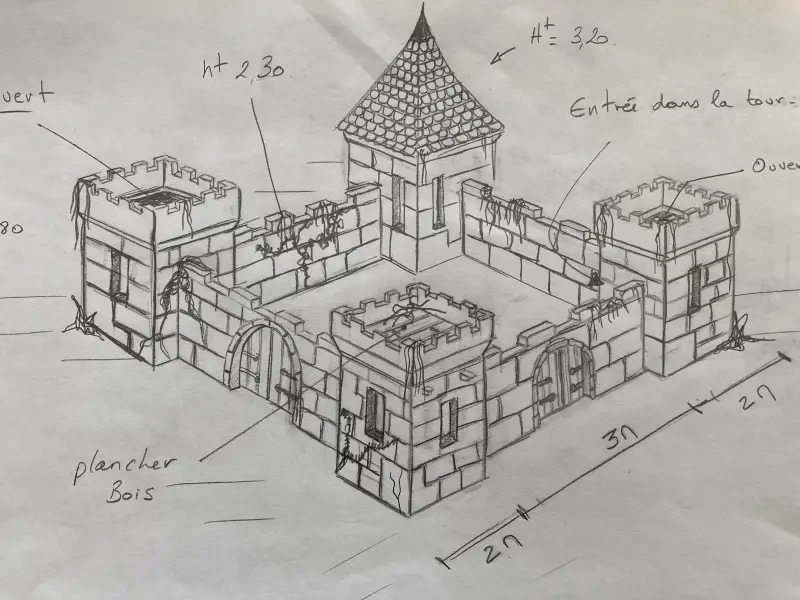 ht 2,30
Ht = 3,20
vert
Entrée dans la tour
Ouver
80
plancher
Bois
3m
2m
2m